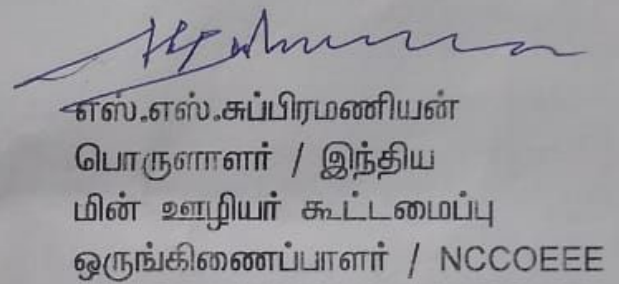 எஸ்.எஸ்.சுப்பிரமணியன்
பொருளாளர் / இந்திய
மின் ஊழியர் கூட்டமைப்பு
ஒருங்கிணைப்பாளர் / NCCOEEE